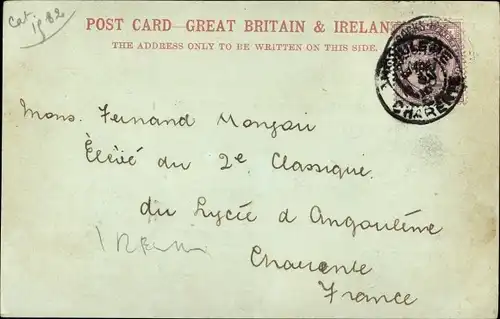 Cat.
1982
POST CARD—GREAT BRITAIN & IRELAN
THE ADDRESS ONLY TO BE WRITTEN ON THIS SIDE.
ANGOULEME
CHARENTE
Mons. Fernand Monjou
Élevé du 2e Classique.
du Lycée d'Angoulême
Charente
France